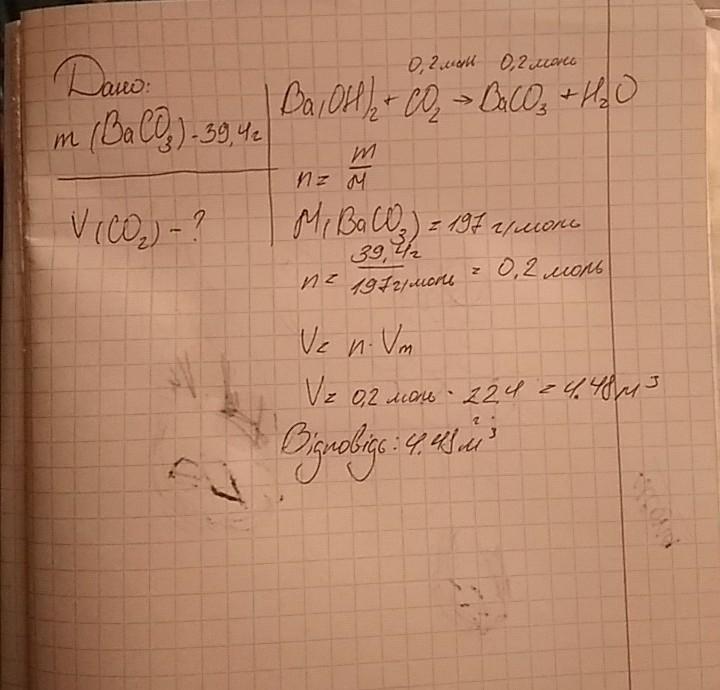 Дано:
m (BaCO3) - 39,4г
V(CO2) - ?
0,2 моль 0,2 моль
Ba(OH)2 + CO2 → BaCO3 + H2O
n = m/M
M(BaCO3) = 197 г/моль
n = 39,4г/197г/моль = 0,2 моль
V = n · Vm
V = 0,2 моль · 22,4 = 4.48 м³
Відповідь: 4.48 м³